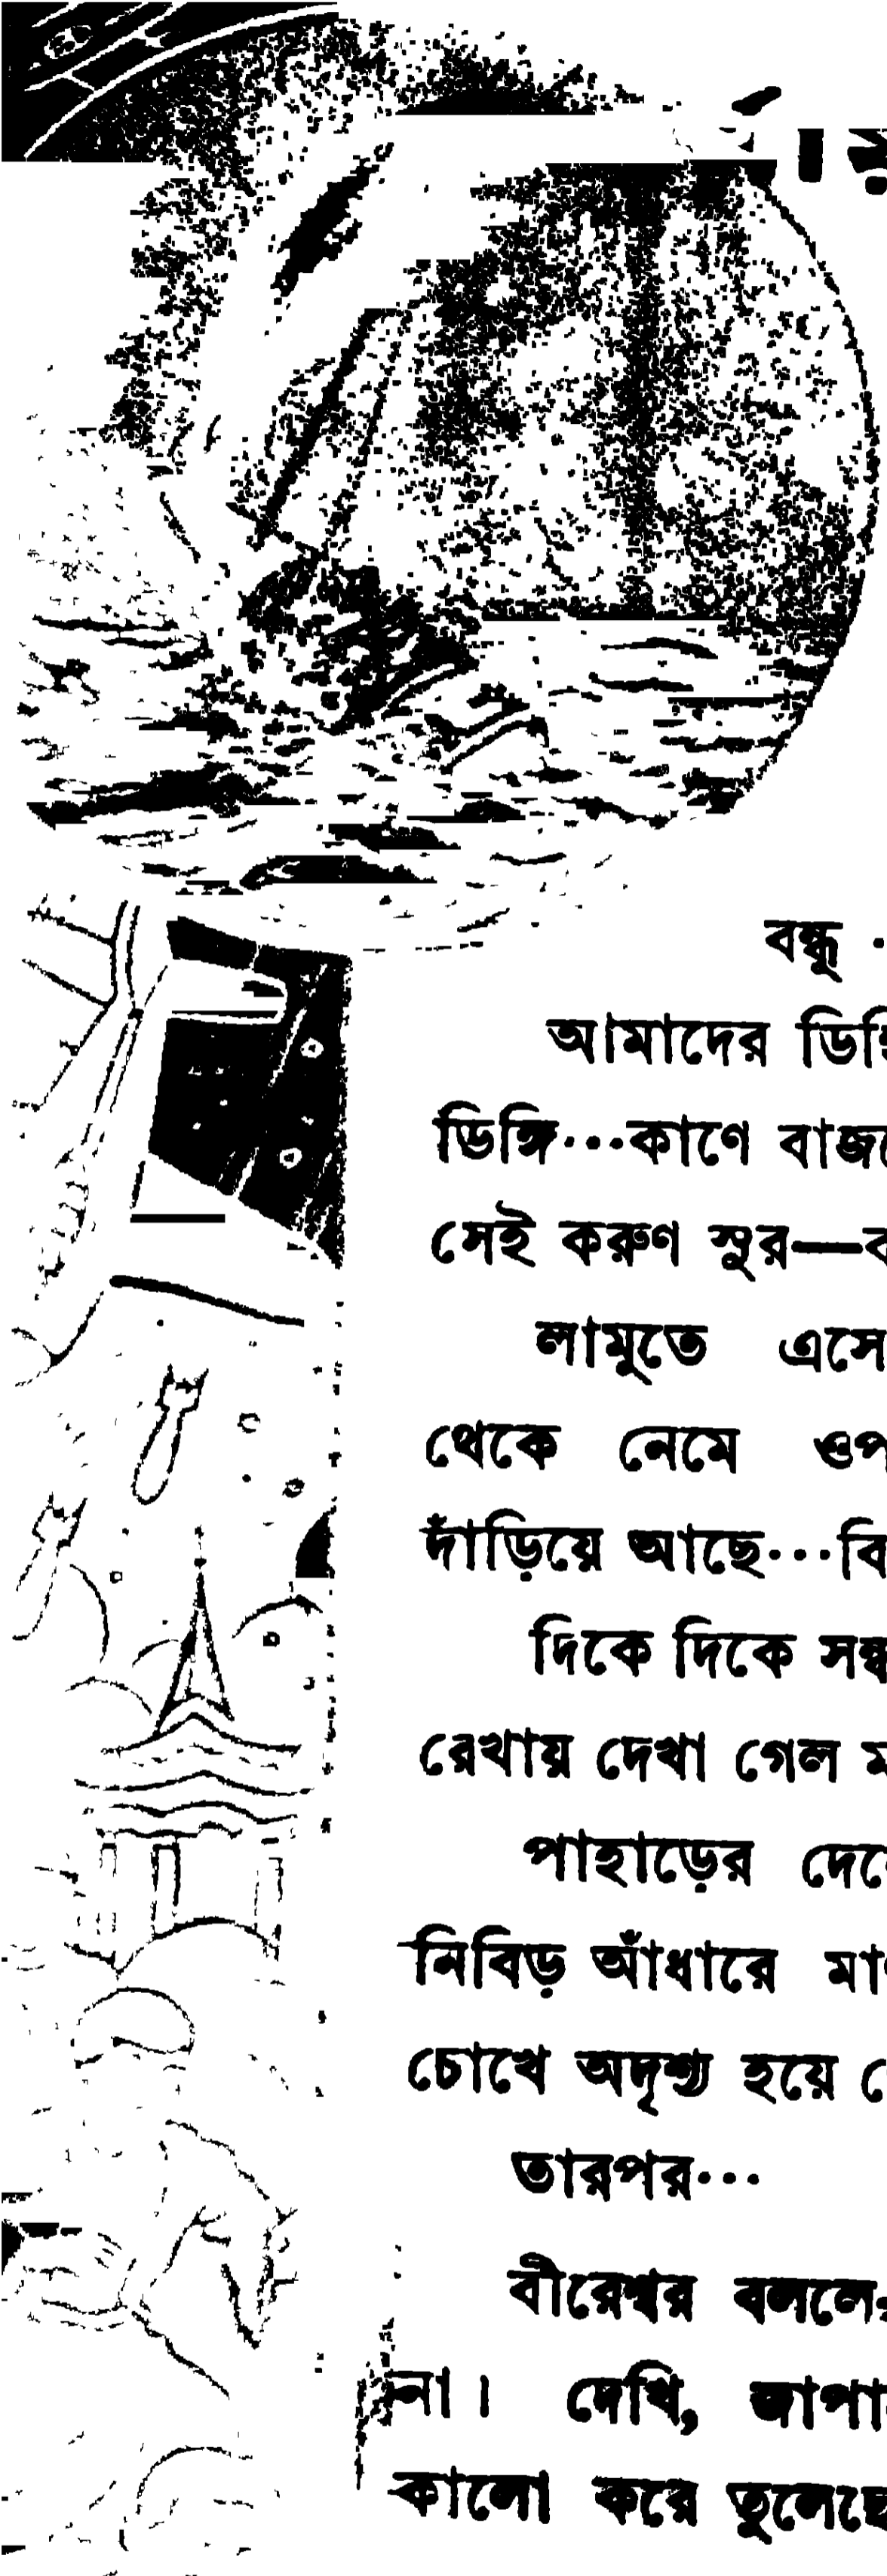 বন্ধু
আমাদের
ডিঙ্গি···কাণে
সেই করুণ সুর—
লামুতে এসে
থেকে নেমে
দাঁড়িয়ে আছে···
দিকে দিকে
রেখায় দেখা গেল
পাহাড়ের
নিবিড় আঁধারে
চোখে অদৃশ্য হয়ে
তারপর···
বীরেশ্বর বললে
না। দেখি,
কালো করে তুলেছে